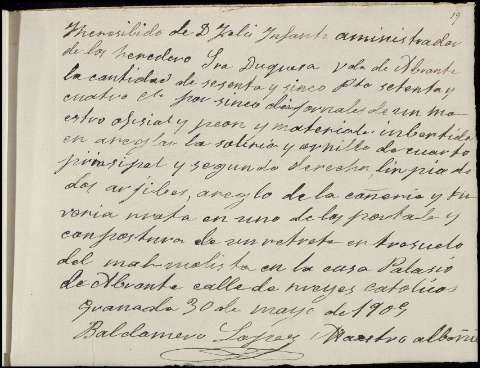 19
He resibido de D. Julio Infante aministrador
de los heredero Sra Duquesa Vda de Abrante
la cantidad de sesenta y sinco Pta setenta y
cuatro cts por sinco dias jornales de un ma-
estro ofisial y peon y materiales inbertido
en areglar la soleria y ornillo de cuarto
prinsipal y segundo derecha, linpia de
dos arjibes, areglo de la cañeria y tu-
veria rrota en uno de los portale y
conpostura de un retrete en trasuelo
del mal molista en la casa Palasio
de Abrante calle de rreyes catolicos
Granada 30 de mayo de 1909
Baldomero Lopez Maestro albañil